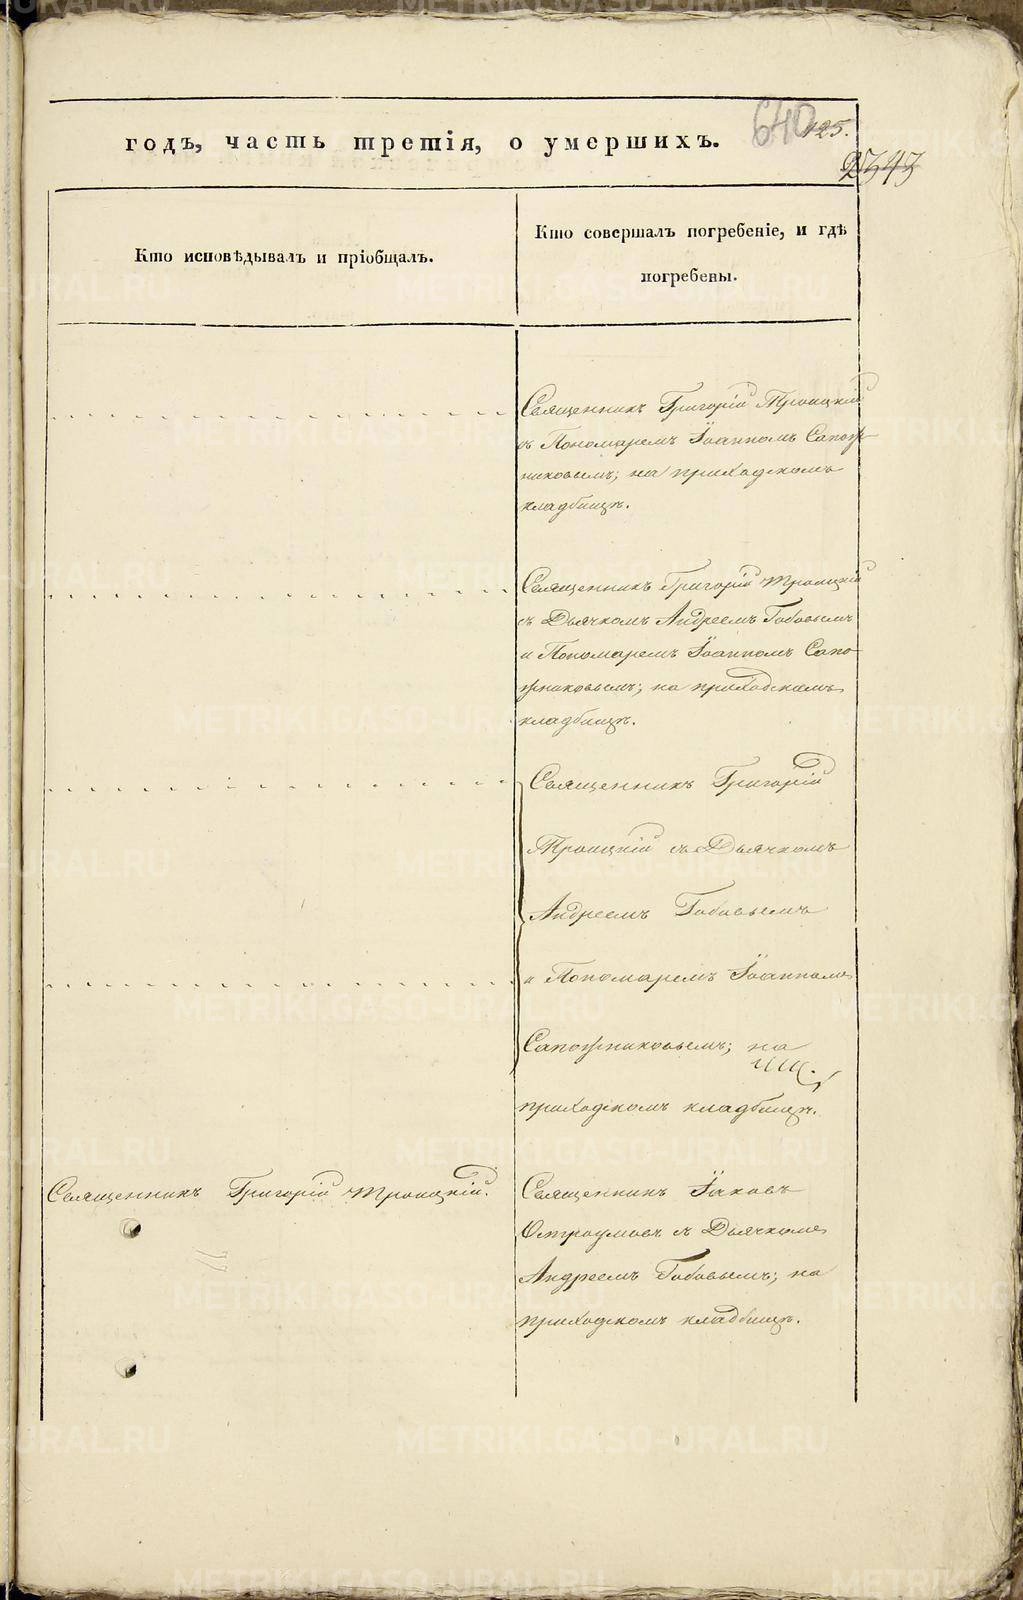 годъ, часть третія, о умершихъ.
640
125.
2343
Кто исповѣдывалъ и пріобщалъ.
Кто совершалъ погребеніе, и гдѣ
погребены.
Священникъ Григорій Троицкій
съ Пономаремъ Іоанномъ Сапож-
никовымъ; на приходскомъ
кладбищѣ.
Священникъ Григорій Троицкій
съ Дьячкомъ Андреемъ Бабовымъ
и Пономаремъ Іоанномъ Сапо-
жниковымъ; на приходскомъ
кладбищѣ.
Священникъ Григорій
Троицкій съ Дьячкомъ
Андреемъ Бабовымъ
и Пономаремъ Іоанномъ
Сапожниковымъ; на
приходскомъ кладбищѣ.
Священникъ Григорій Троицкій.
Священникъ Іаковъ
Остроумовъ съ Дьячкомъ
Андреемъ Бабовымъ; на
приходскомъ кладбищѣ.
METRIKI.GASO-URAL.RU